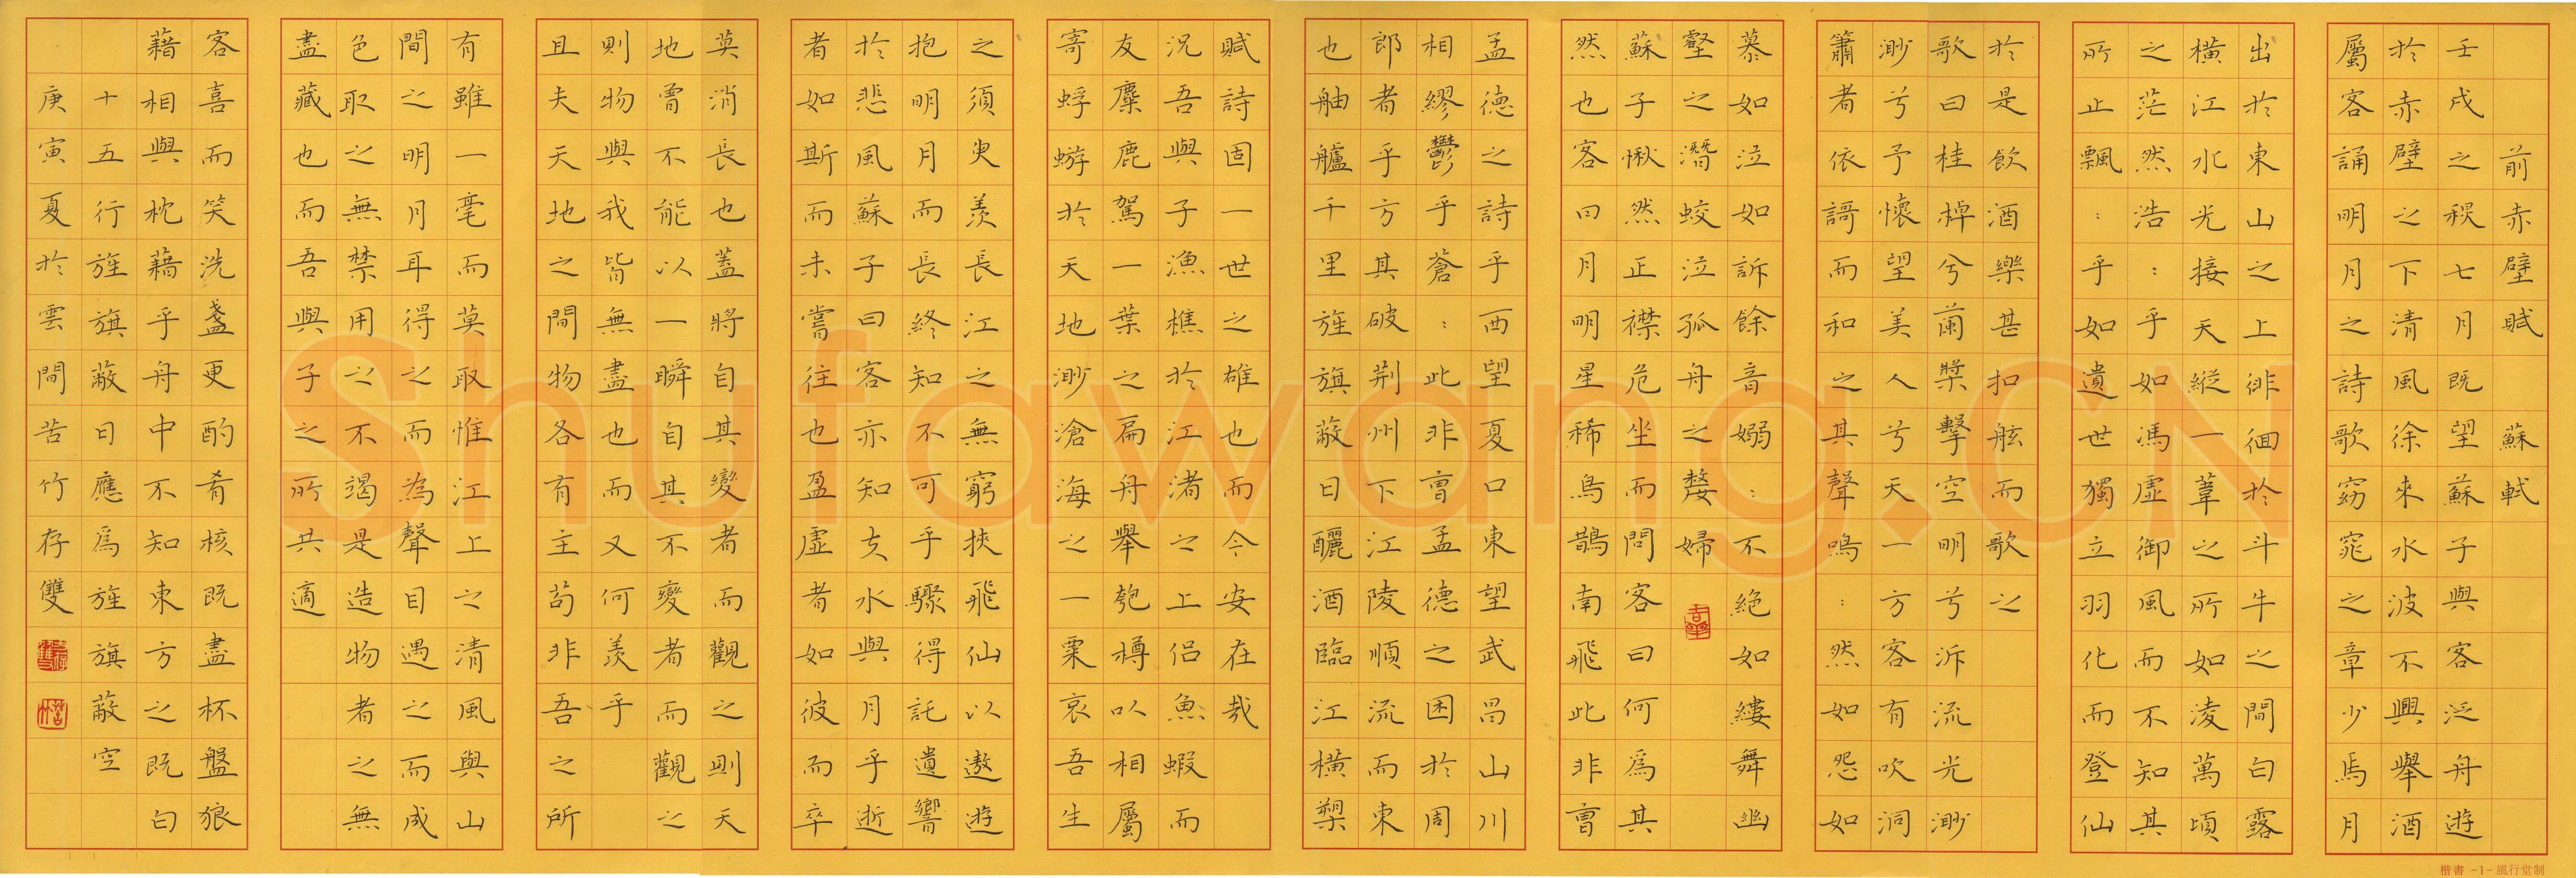 前赤壁賦 蘇軾
壬戌之秋七月既望蘇子與客泛舟遊
於赤壁之下清風徐來水波不興舉酒
屬客誦明月之詩歌窈窕之章少焉月
出於東山之上徘徊於斗牛之間白露
橫江水光接天縱一葦之所如凌萬頃
之茫然浩:乎如馮虛御風而不知其
所止飄:乎如遺世獨立羽化而登仙
於是飲酒樂甚扣舷而歌之
歌曰桂棹兮蘭槳擊空明兮泝流光渺
渺兮予懷望美人兮天一方客有吹洞
簫者依謌而和之其聲嗚:然如怨如
慕如泣如訴餘音嫋:不絕如縷舞幽
壑之潛蛟泣孤舟之嫠婦
蘇子愀然正襟危坐而問客曰何爲其
然也客曰月明星稀烏鵲南飛此非曹
孟德之詩乎西望夏口東望武昌山川
相繆鬱乎蒼:此非曹孟德之困於周
郎者乎方其破荆州下江陵順流而東
也舳艫千里旌旗蔽日釃酒臨江橫槊
賦詩固一世之雄也而今安在哉
況吾與子漁樵於江渚之上侶魚蝦而
友麋鹿駕一葉之扁舟舉匏樽以相屬
寄蜉蝣於天地渺滄海之一粟哀吾生
之須臾羨長江之無窮挾飛仙以遨遊
抱明月而長終知不可乎驟得託遺響
於悲風蘇子曰客亦知夫水與月乎逝
者如斯而未嘗往也盈虛者如彼而卒
莫消長也蓋將自其變者而觀之則天
地曾不能以一瞬自其不變者而觀之
則物與我皆無盡也而又何羨乎
且夫天地之間物各有主苟非吾之所
有雖一毫而莫取惟江上之清風與山
間之明月耳得之而為聲目遇之而成
色取之無禁用之不竭是造物者之無
盡藏也而吾與子之所共適
客喜而笑洗盞更酌肴核既盡杯盤狼
藉相與枕藉乎舟中不知東方之既白
十五行旌旗蔽日應爲旌旗蔽空
庚寅夏於雲間苦竹存雙
楷書 -1- 風行堂制
Shufawang.CN